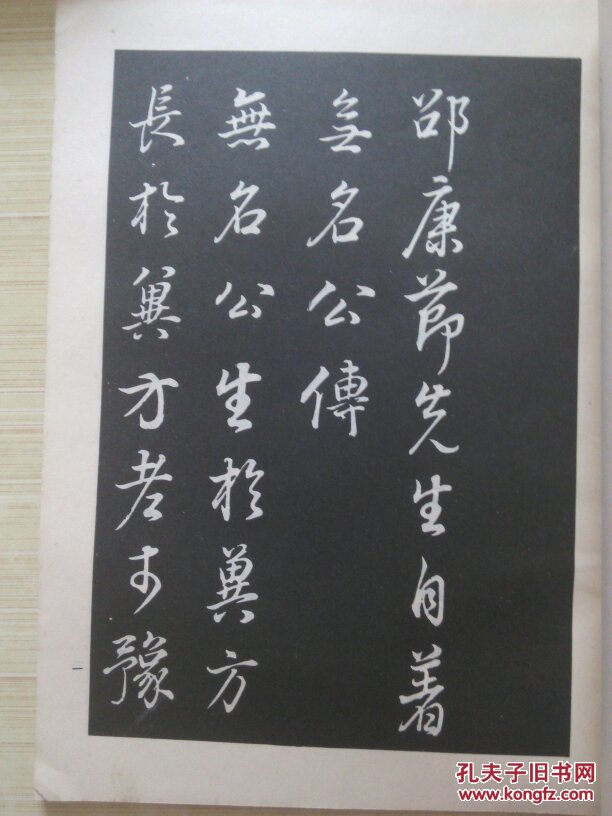 邵康節先生自著
無名公傳
無名公生於冀方
長於冀方老于豫
一
孔夫子旧书网
www.kongfz.com